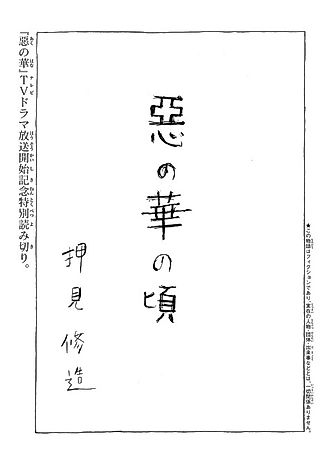 ★この物語はフィクションであり、実在の人物・団体・出来事などとは、一切関係ありません。
惡の華の頃
押見修造
『惡の華』TVドラマ放送開始記念特別読み切り。